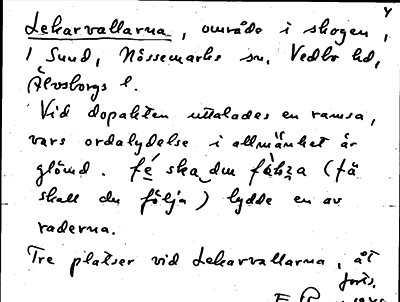 4
Lekarvallarna, område i skogen,
i Sund, Nössemarks sn, Vedbo hd,
Älvsborgs l.
Vid dopakten uttalades en ramsa,
vars ordalydelse i allmänhet är
glömd. fé ska du fåhza (få
skall du följa) lydde en av
raderna.
Tre platser vid Lekarvallarna, åt
forts.